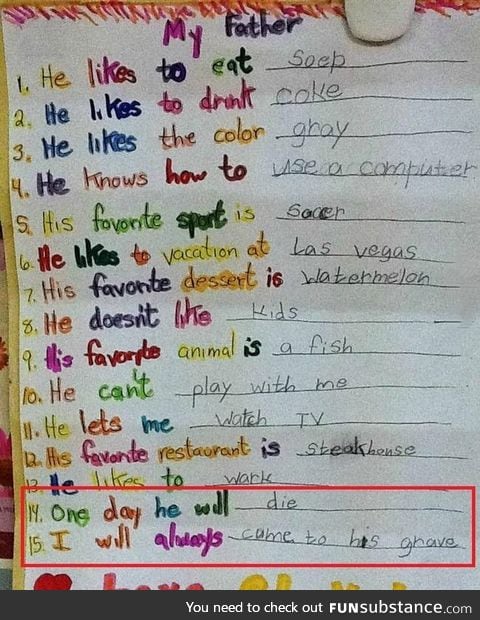 My Father
1. He likes to eat Soep
2. He likes to drink coke
3. He likes the color ghay
4. He Knows how to use a computer
5. His favorite sport is Socer
6. He likes to vacation at Las vegas
7. His favorite dessert is Watermelon
8. He doesn't like Kids
9. His favoryte animal is a fish
10. He can't play with me
11. He lets me Watch TV
12. His favorite restaurant is steakhouse
13. He likes to wark
14. One day he will die
15. I will always came to his ghave
You need to check out FUNsubstance.com